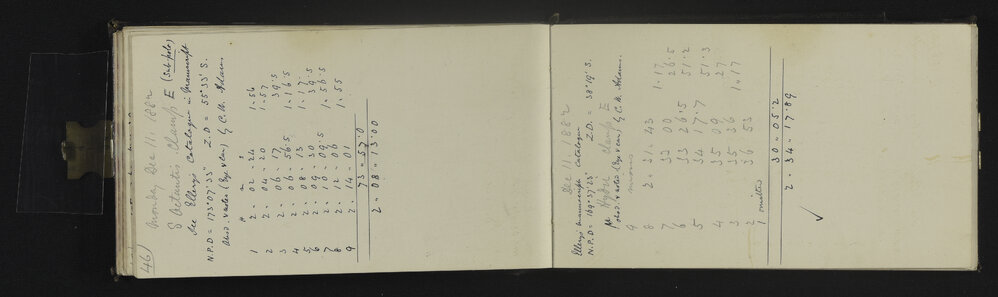 46)
Monday Dec 11. 1882
δ Octantis Clamp E (Sub polo)
See Ellery's Catalogue in Manuscript
N.P.D = 173°07'33" Z.D = 55°33' S.
Obsd. & noted (Eye & ear) by C.W. Adams.
H m s
1 2.02.24 1.56
2 2.04.20 1.57
3 2.06.17 39.5
4 2.06.56.5 1.16.5
5 2.08.13 1.17
6 2.09.30 39.5
7 2.10.09.5 1.56.5
8 2.12.06 1.55
9 2.14.01
73.57.0
2.08.13.00
Dec 11. 1882
Ellery's manuscript Catalogue
N.P.D = 169°37'25" Z.D. = 38°19' S.
μ Hydri Clamp E
obsd. & noted (Eye & ear) by C.W. Adams.
9
8 2.31.43 1.17
7 33 00 26.5
6 33 26.5 51.2
5 34 17.7 51.3
4 35 09 27
3 35 36 1.17
2 36 53
1 omitted
30.05.2
2.34.17.89